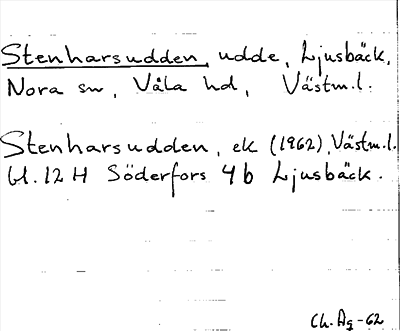 Stenharsudden, udde, Ljusbäck,
Nora sn, Våla hd, Västm.l.
Stenharsudden, ek (1962), Västm.l.
bl. 12 H Söderfors 4 b Ljusbäck.
Ch. Ag -62